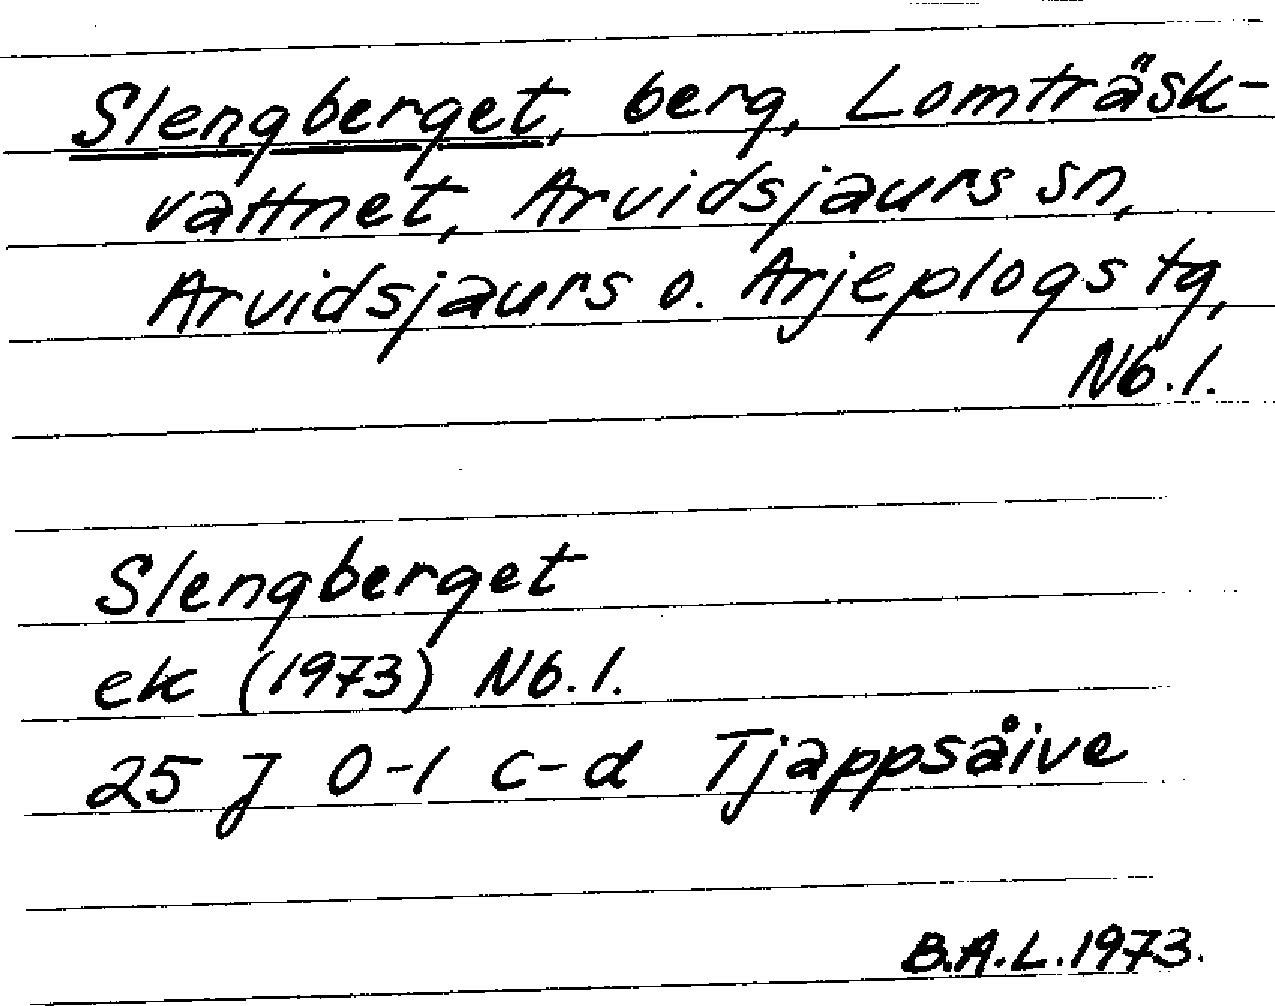 Slengberget, berg, Lomträsk-
vattnet, Arvidsjaurs sn,
Arvidsjaurs o. Arjeplogs tg,
Nb. l.
Slengberget
ek (1973) Nb. l.
25 J 0-1 c-d Tjappsåive
B.A.L. 1973.